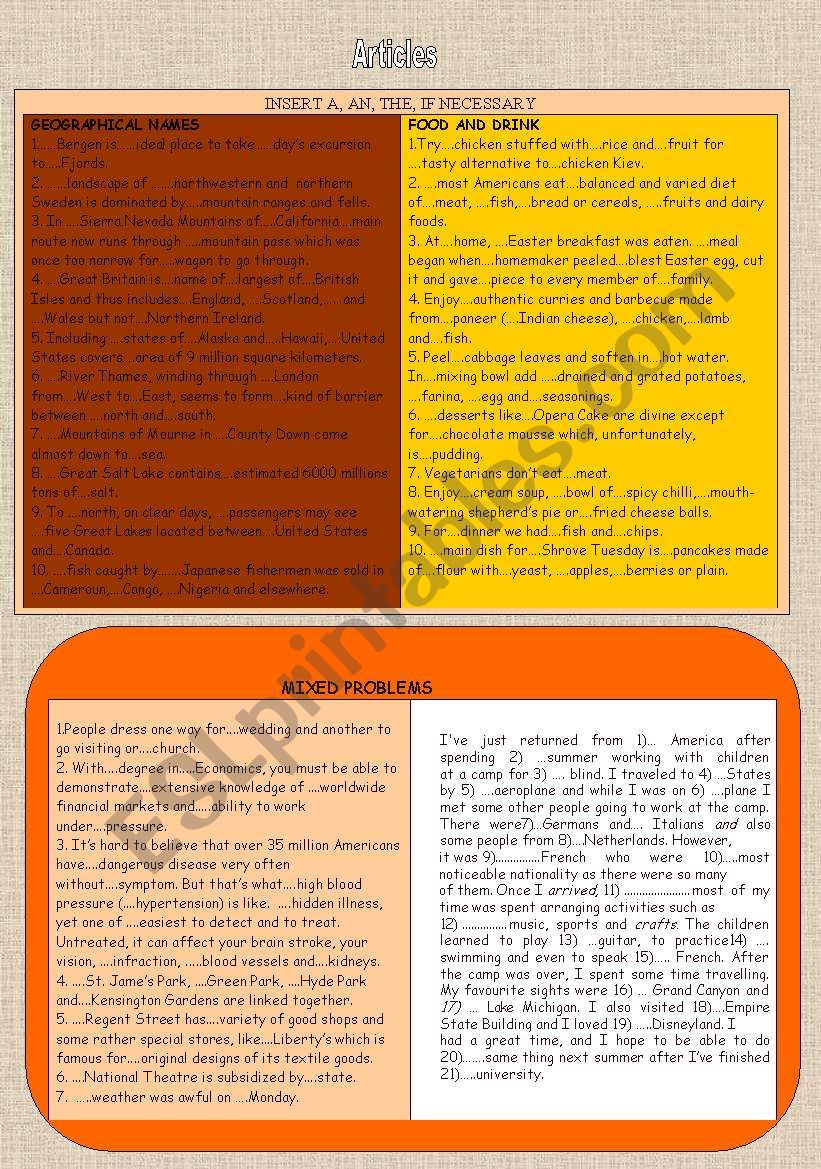 Articles
INSERT A, AN, THE, IF NECESSARY
GEOGRAPHICAL NAMES
1......Bergen is......ideal place to take......day's excursion
to.....Fjords.
2. .......landscape of .......northwestern and northern
Sweden is dominated by.....mountain ranges and fells.
3. In ....Sierra Nevada Mountains of.....California....main
route now runs through .....mountain pass which was
once too narrow for.....wagon to go through.
4. ....Great Britain is....name of....largest of....British
Isles and thus includes....England, ....Scotland,..... and
....Wales but not....Northern Ireland.
5. Including ....states of....Alaska and.....Hawaii,....United
States covers ...area of 9 million square kilometers.
6. ....River Thames, winding through ....London
from....West to....East, seems to form....kind of barrier
between ....north and....south.
7. ....Mountains of Mourne in ....County Down come
almost down to....sea.
8. ....Great Salt Lake contains....estimated 6000 millions
tons of....salt.
9. To ....north, on clear days, ....passengers may see
....five Great Lakes located between....United States
and....Canada.
10. ....fish caught by........Japanese fishermen was sold in
....Cameroun,....Congo, ....Nigeria and elsewhere.
FOOD AND DRINK
1.Try....chicken stuffed with....rice and....fruit for
....tasty alternative to....chicken Kiev.
2. ....most Americans eat....balanced and varied diet
of....meat, ....fish,....bread or cereals, .....fruits and dairy
foods.
3. At....home, ....Easter breakfast was eaten. ....meal
began when....homemaker peeled....blest Easter egg, cut
it and gave....piece to every member of....family.
4. Enjoy....authentic curries and barbecue made
from....paneer (....Indian cheese), ....chicken,....lamb
and....fish.
5. Peel....cabbage leaves and soften in....hot water.
In....mixing bowl add .....drained and grated potatoes,
....farina, ....egg and....seasonings.
6. ....desserts like....Opera Cake are divine except
for....chocolate mousse which, unfortunately,
is....pudding.
7. Vegetarians don't eat....meat.
8. Enjoy....cream soup, ....bowl of....spicy chilli,....mouth-
watering shepherd's pie or....fried cheese balls.
9. For....dinner we had....fish and....chips.
10. ....main dish for....Shrove Tuesday is....pancakes made
of....flour with....yeast, ....apples,....berries or plain.
MIXED PROBLEMS
1.People dress one way for....wedding and another to
go visiting or....church.
2. With....degree in.....Economics, you must be able to
demonstrate....extensive knowledge of ....worldwide
financial markets and.....ability to work
under....pressure.
3. It's hard to believe that over 35 million Americans
have....dangerous disease very often
without....symptom. But that's what....high blood
pressure (....hypertension) is like. ....hidden illness,
yet one of ....easiest to detect and to treat.
Untreated, it can affect your brain stroke, your
vision, ....infraction, .....blood vessels and....kidneys.
4. ....St. Jame's Park, ....Green Park, ....Hyde Park
and....Kensington Gardens are linked together.
5. ....Regent Street has....variety of good shops and
some rather special stores, like....Liberty's which is
famous for....original designs of its textile goods.
6. ....National Theatre is subsidized by....state.
7. .....weather was awful on ....Monday.
I've just returned from 1)... America after
spending 2) ...summer working with children
at a camp for 3) .... blind. I traveled to 4) ...States
by 5) ....aeroplane and while I was on 6) ....plane I
met some other people going to work at the camp.
There were7)...Germans and.... Italians and also
some people from 8)....Netherlands. However,
it was 9)...............French who were 10).....most
noticeable nationality as there were so many
of them. Once I arrived, 11) ......................most of my
time was spent arranging activities such as
12) ...............music, sports and crafts. The children
learned to play 13) ...guitar, to practice14) ....
swimming and even to speak 15)..... French. After
the camp was over, I spent some time travelling.
My favourite sights were 16) ... Grand Canyon and
17) ... Lake Michigan. I also visited 18)....Empire
State Building and I loved 19) .....Disneyland. I
had a great time, and I hope to be able to do
20).......same thing next summer after I've finished
21).....university.
ESLprintables.com